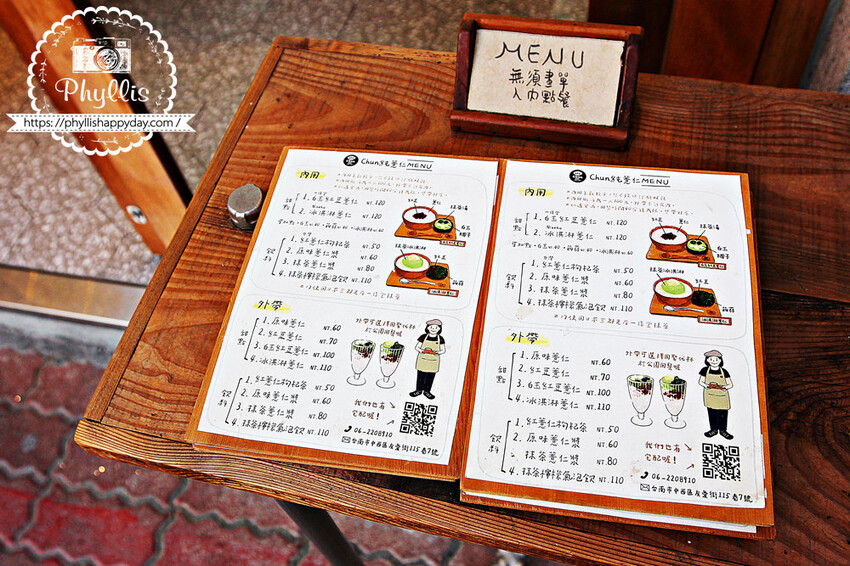 Phyllis
https://phyllishappyday.com/
MENU
無須畫單
入內點餐
Chun純薏仁MENU
內用
甜點
1. 6玉紅豆薏仁 NT.120
2. 冰淇淋薏仁 NT.120
飲料
1. 紅薏仁枸杞茶 NT.50
2. 原味薏仁漿 NT.60
3. 抹茶薏仁漿 NT.80
4. 抹茶檸檬氣泡飲 NT.110
紅豆
薏仁
抹茶湯
抹茶冰淇淋
紅豆
蒟蒻
外帶
甜點
1. 原味薏仁 NT.60
2. 紅豆薏仁 NT.70
3. 6玉紅豆薏仁 NT.100
4. 冰淇淋薏仁 NT.110
飲料
1. 紅薏仁枸杞茶 NT.50
2. 原味薏仁漿 NT.60
3. 抹茶薏仁漿 NT.80
4. 抹茶檸檬氣泡飲 NT.110
外帶可選擇用聖代杯
於公園用餐呢
我們也有
宅配喔!
06-2208910
台南市中西區友愛街115巷7號
Chun純薏仁MENU
內用
甜點
1. 6玉紅豆薏仁 NT.120
2. 冰淇淋薏仁 NT.120
飲料
1. 紅薏仁枸杞茶 NT.50
2. 原味薏仁漿 NT.60
3. 抹茶薏仁漿 NT.80
4. 抹茶檸檬氣泡飲 NT.110
紅豆
薏仁
抹茶湯
抹茶冰淇淋
紅豆
蒟蒻
外帶
甜點
1. 原味薏仁 NT.60
2. 紅豆薏仁 NT.70
3. 6玉紅豆薏仁 NT.100
4. 冰淇淋薏仁 NT.110
飲料
1. 紅薏仁枸杞茶 NT.50
2. 原味薏仁漿 NT.60
3. 抹茶薏仁漿 NT.80
4. 抹茶檸檬氣泡飲 NT.110
外帶可選擇用聖代杯
於公園用餐呢
我們也有
宅配喔!
06-2208910
台南市中西區友愛街115巷7號